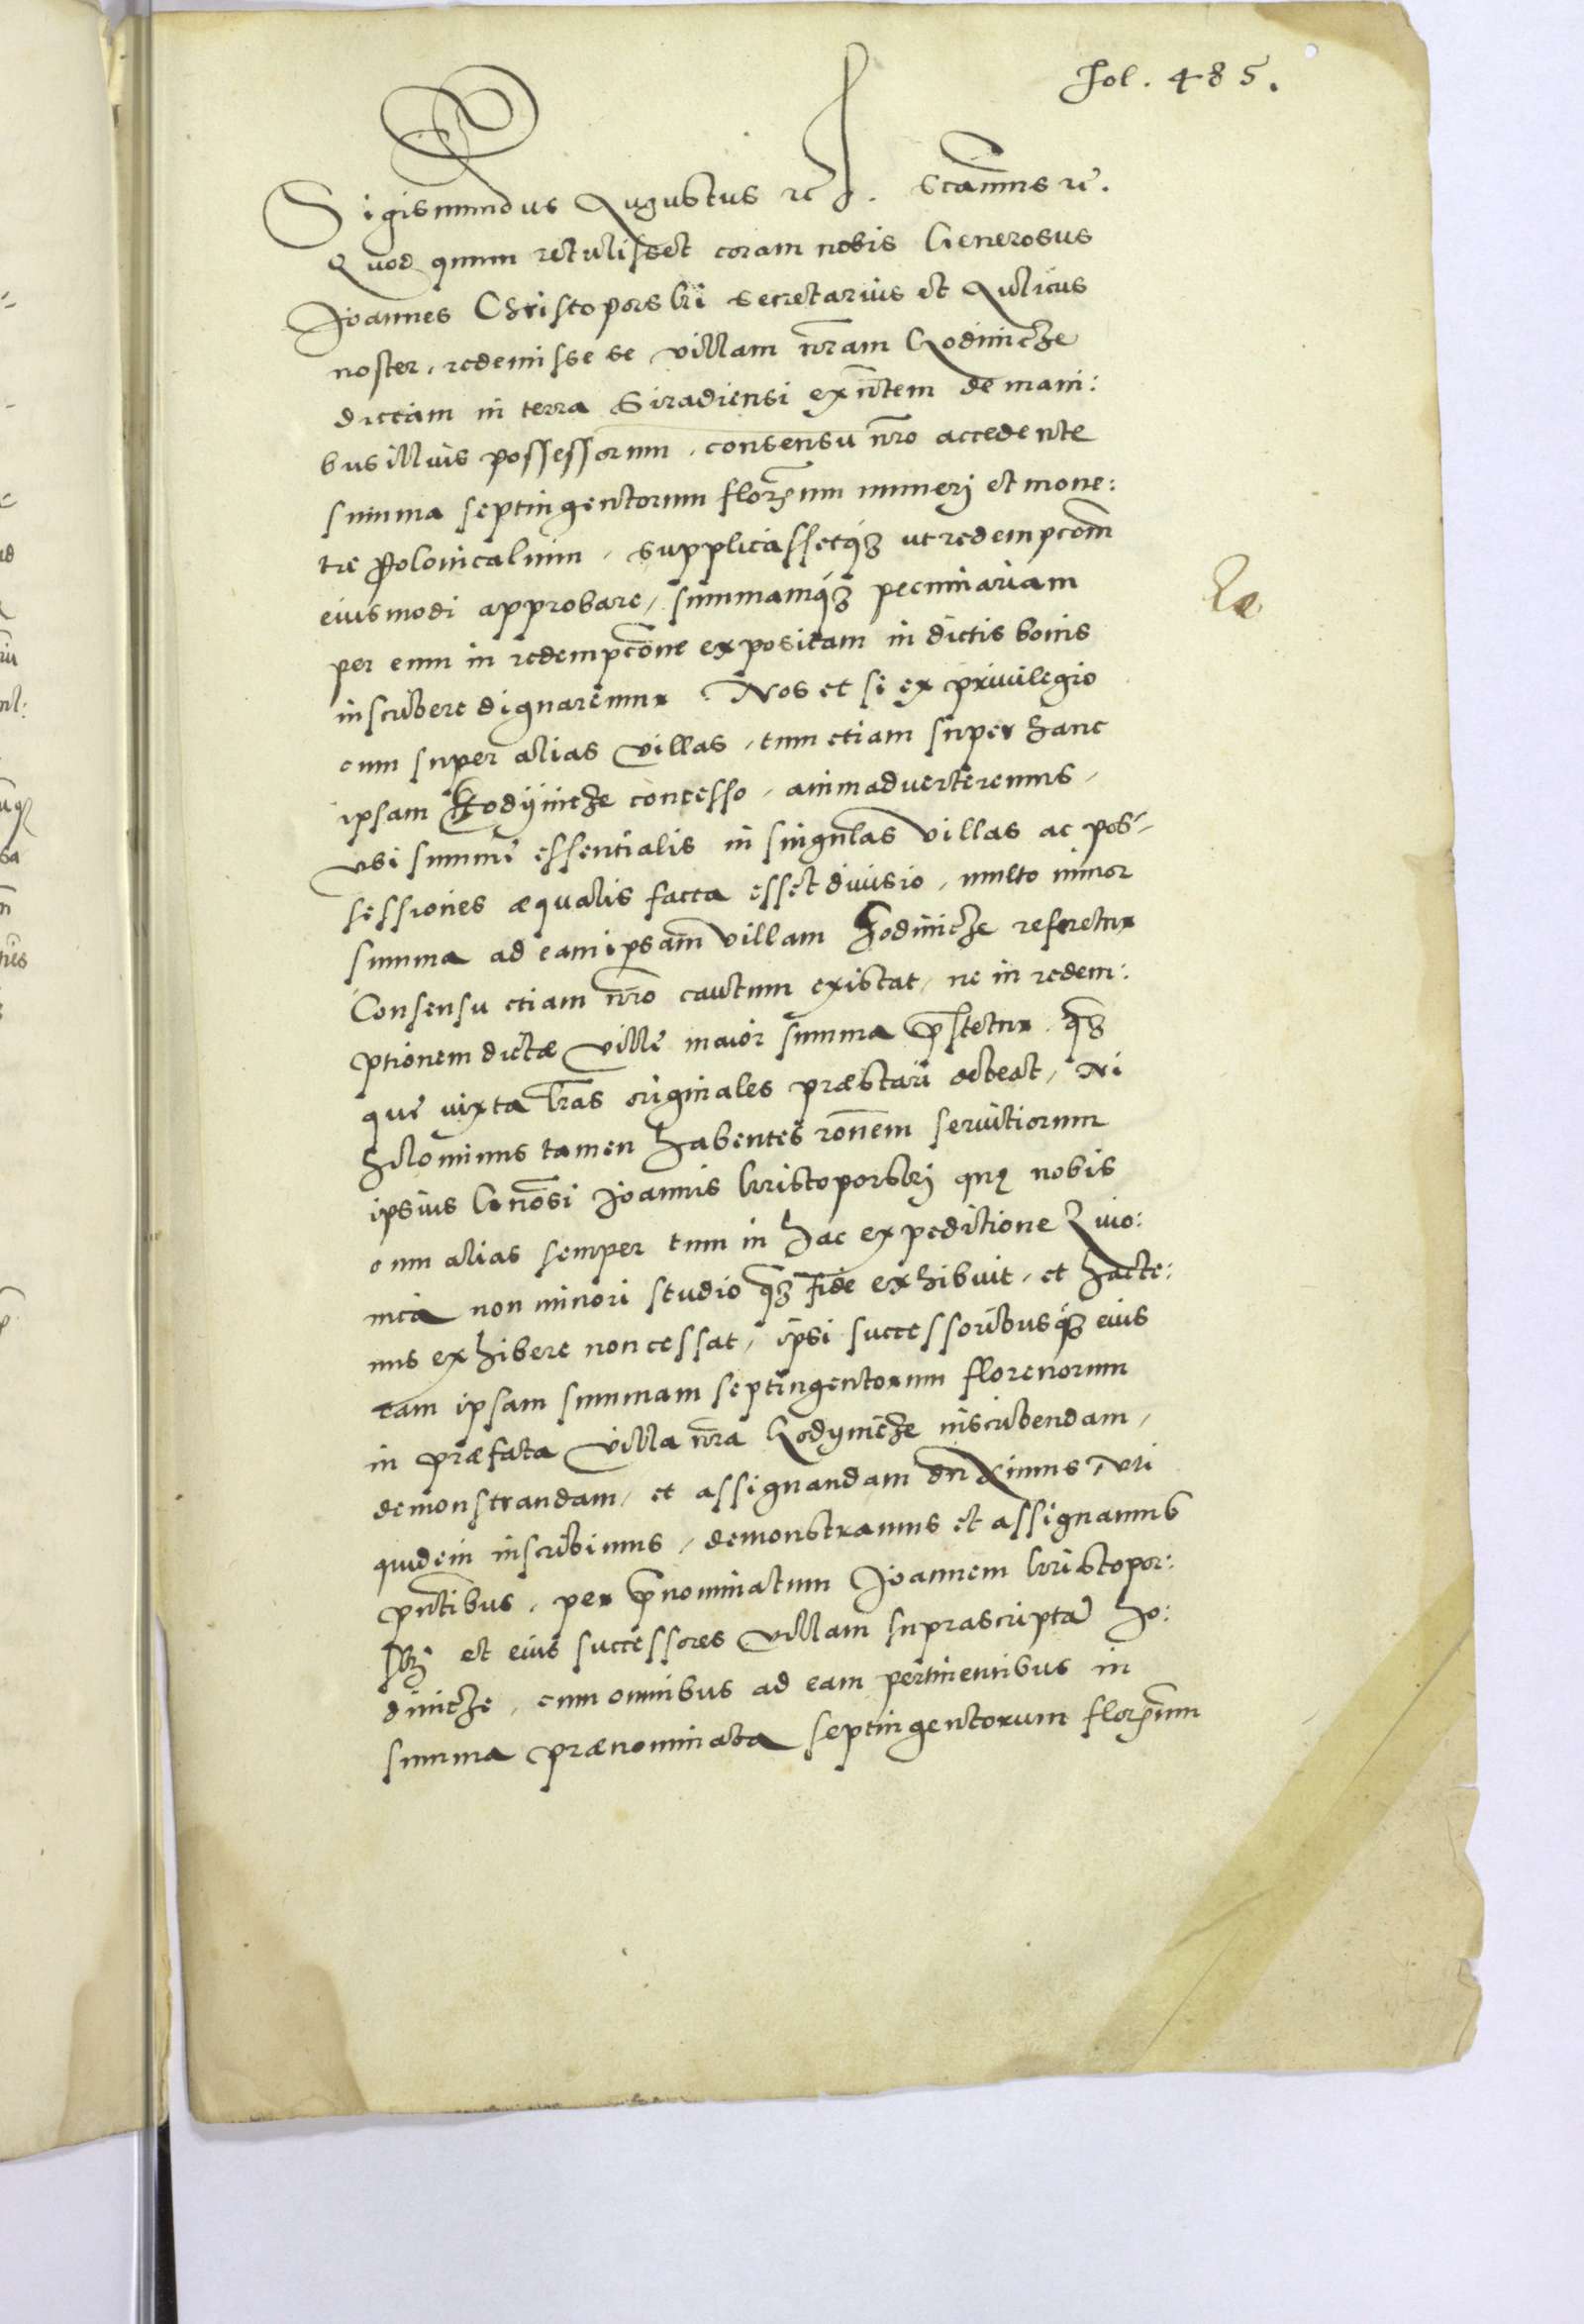 Fol. 485.
Sigismundus Augustus rc̄. sc̄amus rc̄.
Quod quum retulisset coram nobis Generosus
Joannes Christoporski Secretarius et Aulicus
noster, redemisse se villam nr̄am
dictam in terra Siradiensi exn̄tem de mani:
bus illius possessorum, consensu nr̄o accedente
summa septingentorum florenum numeri et mone:
tæ Polonicalium, supplicassetq3 ut redempcōm
eiusmodi approbare, summamq3 pecuniariam
per eum in redempcōne expositam in dictis bonis
inscribere dignaremur. Nos et si ex privilegio
cum super alias villas, tum etiam super hanc
ipsam concesso, animadverteremus,
ubi summæ essentialis in singulas villas ac pos-
sessiones æqualis facta esset divisio, multo minor
summa ad eam ipsam villam Hodinicze referetur
Consensu etiam nr̄o cautum existat, ne in redem:
ptionem dictæ villæ maior summa p̄stetur, q̄3
que iuxta lr̄as originales præstari debeat, Ni
hilominus tamen habentes rōnem servitiorum
ipsius Gen̄osi Joannis Kristoporski quę nobis
cum alias semper tum in hac expeditione Livo:
nica non minori studio q̄3 fide exhibuit, et hacte:
nus exhibere non cessat, ipsi successoribusq3 eius
eam ipsam summam septingentorum florenorum
in præfata villa nr̄a inscribendam,
demonstrandam, et assignandam duximus Uti
quidem inscribimus, demonstramus et assignamus
pn̄tibus, per p̄nominatum Joannem Kristopor:
ski et eius successores villam suprascriptā Ho:
dinicze, cum omnibus ad eam pertinentibus in
summa prænominata septingentorum florenum